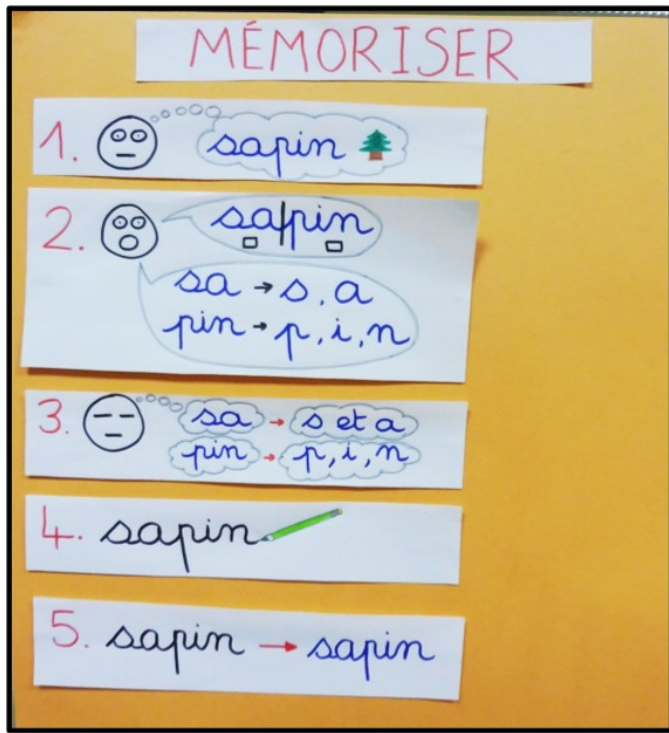 MÉMORISER
1. sapin
2. sa|pin
sa → s, a
pin → p, i, n
3. sa → s et a
pin → p, i, n
4. sapin
5. sapin → sapin